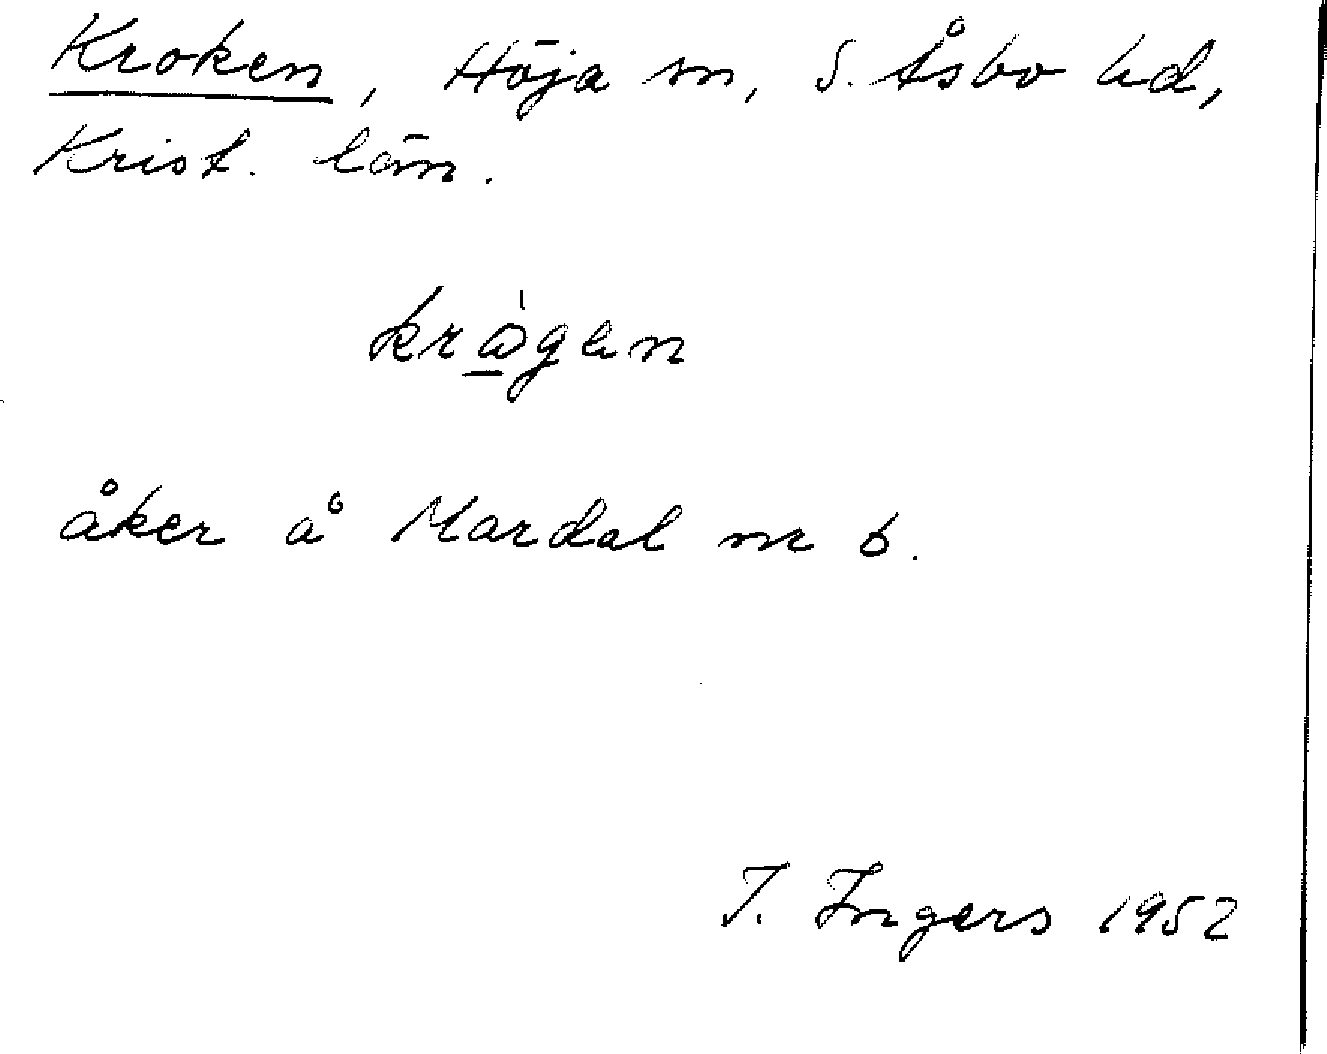 Kroken, Höja sn, S. Åsbo hd,
Krist. län.
krågen
åker å Mardal nr 6.
I. Ingers 1952